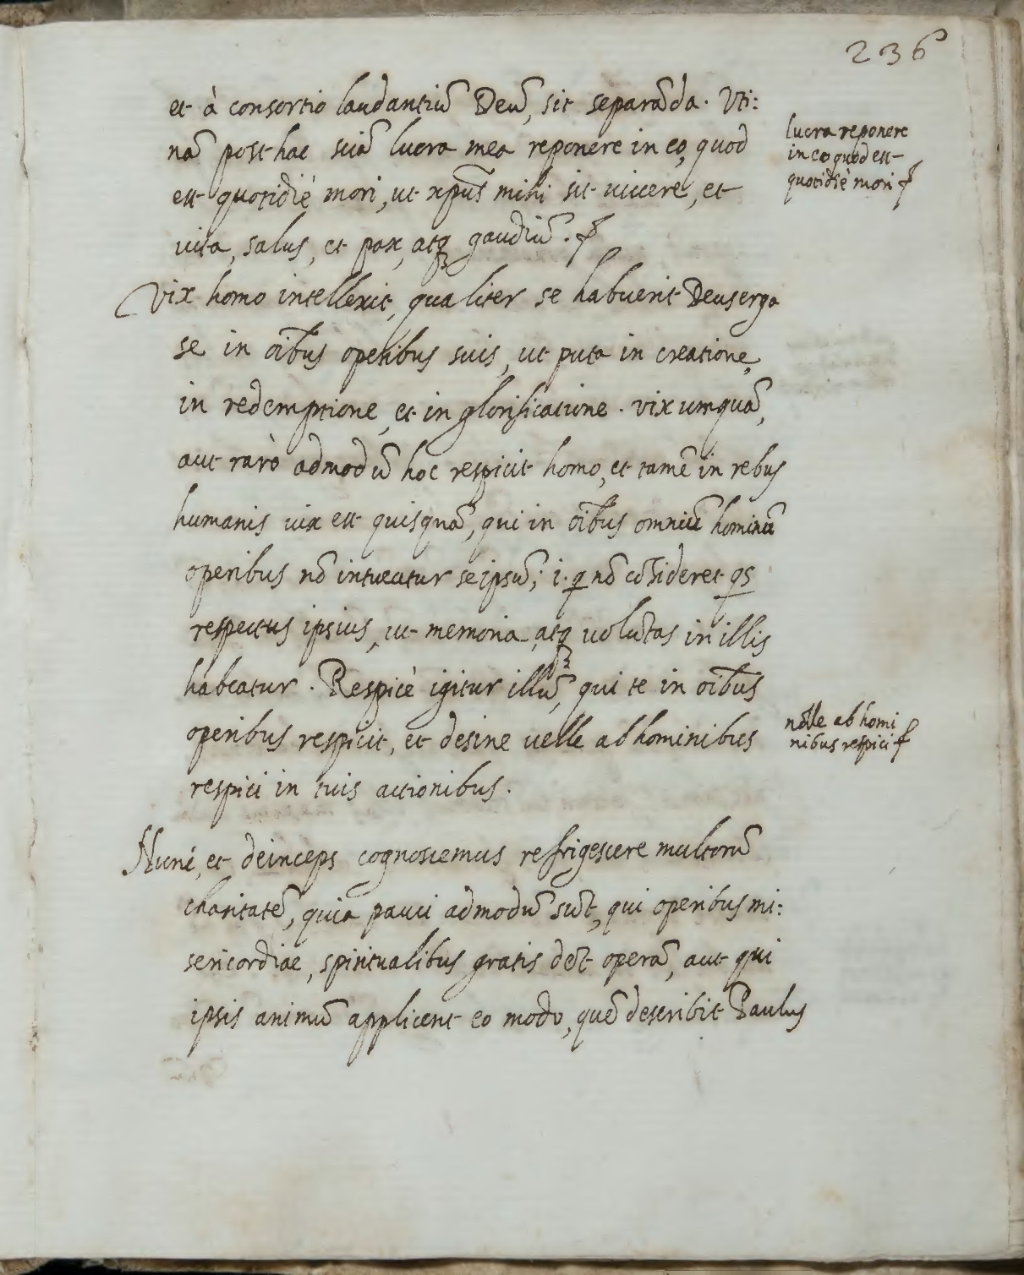 236
et à consortio laudantiū Deū, sit separāda. Vti:
nā posthac sciā lucra mea reponere in eo, quod
est quotidiè mori, ut xpūs mihi sit uiuere, et
uita, salus, et pax, atq gaudiū.
Vix homo intellexit, qualiter se habuerit Deus erga
se in oībus operibus suis, ut puta in creatione,
in redemptione, et in glorificatione. vix umquā,
aut rarò admodū hoc respicit homo, et tamē in rebus
humanis uix est quisquā, qui in oībus omniū hominū
operibus nō intueatur seipsū; i. q nō cōsideret qs
respectus ipsius, ut memoria, atq volūtas in illis
habeatur. Respicè igitur illū, qui te in oībus
operibus respicit, et desine uelle ab hominibus
respici in tuis actionibus.
Nunc, et deinceps cognoscemus refrigescere multorū
charitatē, quia pauci admodū sūt, qui operibus mi:
sericordiae, spiritualibus gratis dēt operā, aut qui
ipsis animū applicent eo modo, quē describit Paulus
lucra reponere
in eo quod est
quotidiè mori
nolle ab homi
nibus respici